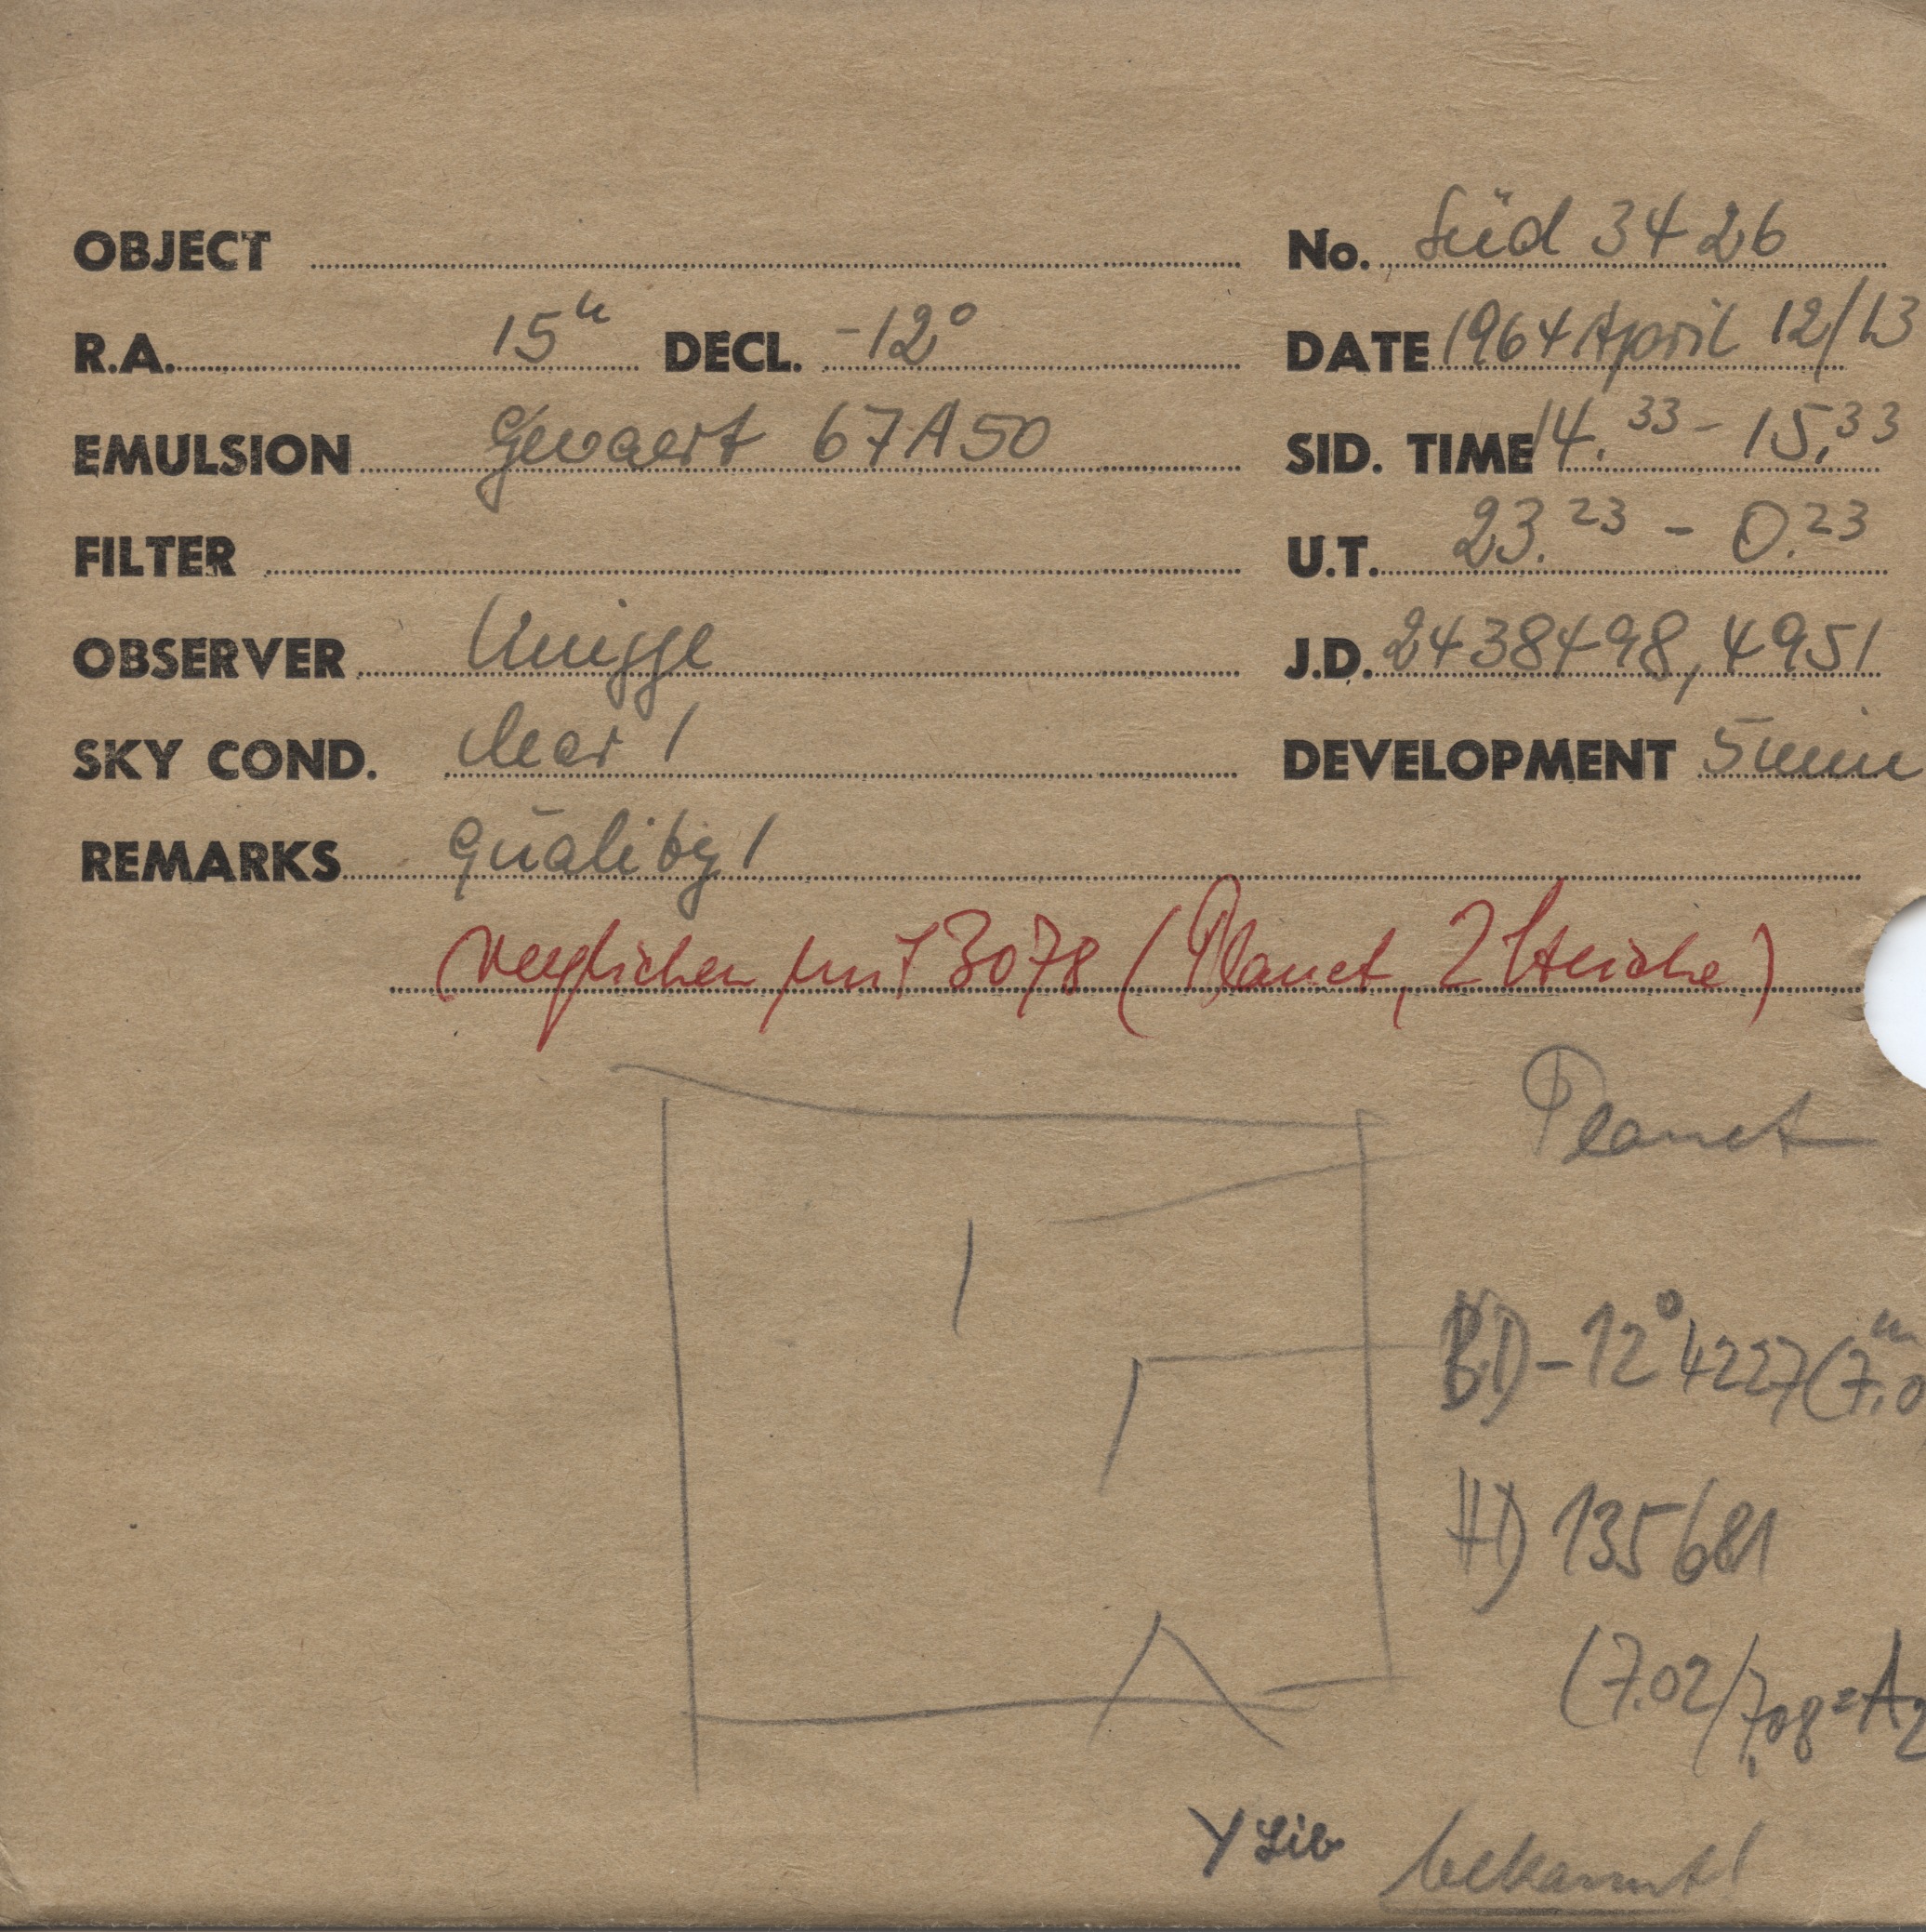 OBJECT No. Süd 3426
R.A. 15h DECL. -12° DATE 1964 April 12/13
EMULSION Gevaert 67A50 SID. TIME 14.33 - 15.33
FILTER U.T. 23.23 - 0.23
OBSERVER Knigge J.D. 2438498,4951
SKY COND. clear 1 DEVELOPMENT 5 min
REMARKS Quality 1
(verglichen mit 3078 (Planet, 2 Striche)
Planet
BD -12° 4227 (7.m0
HD 135681
(7.02/7.08 = A2
Y Lib bekannt!